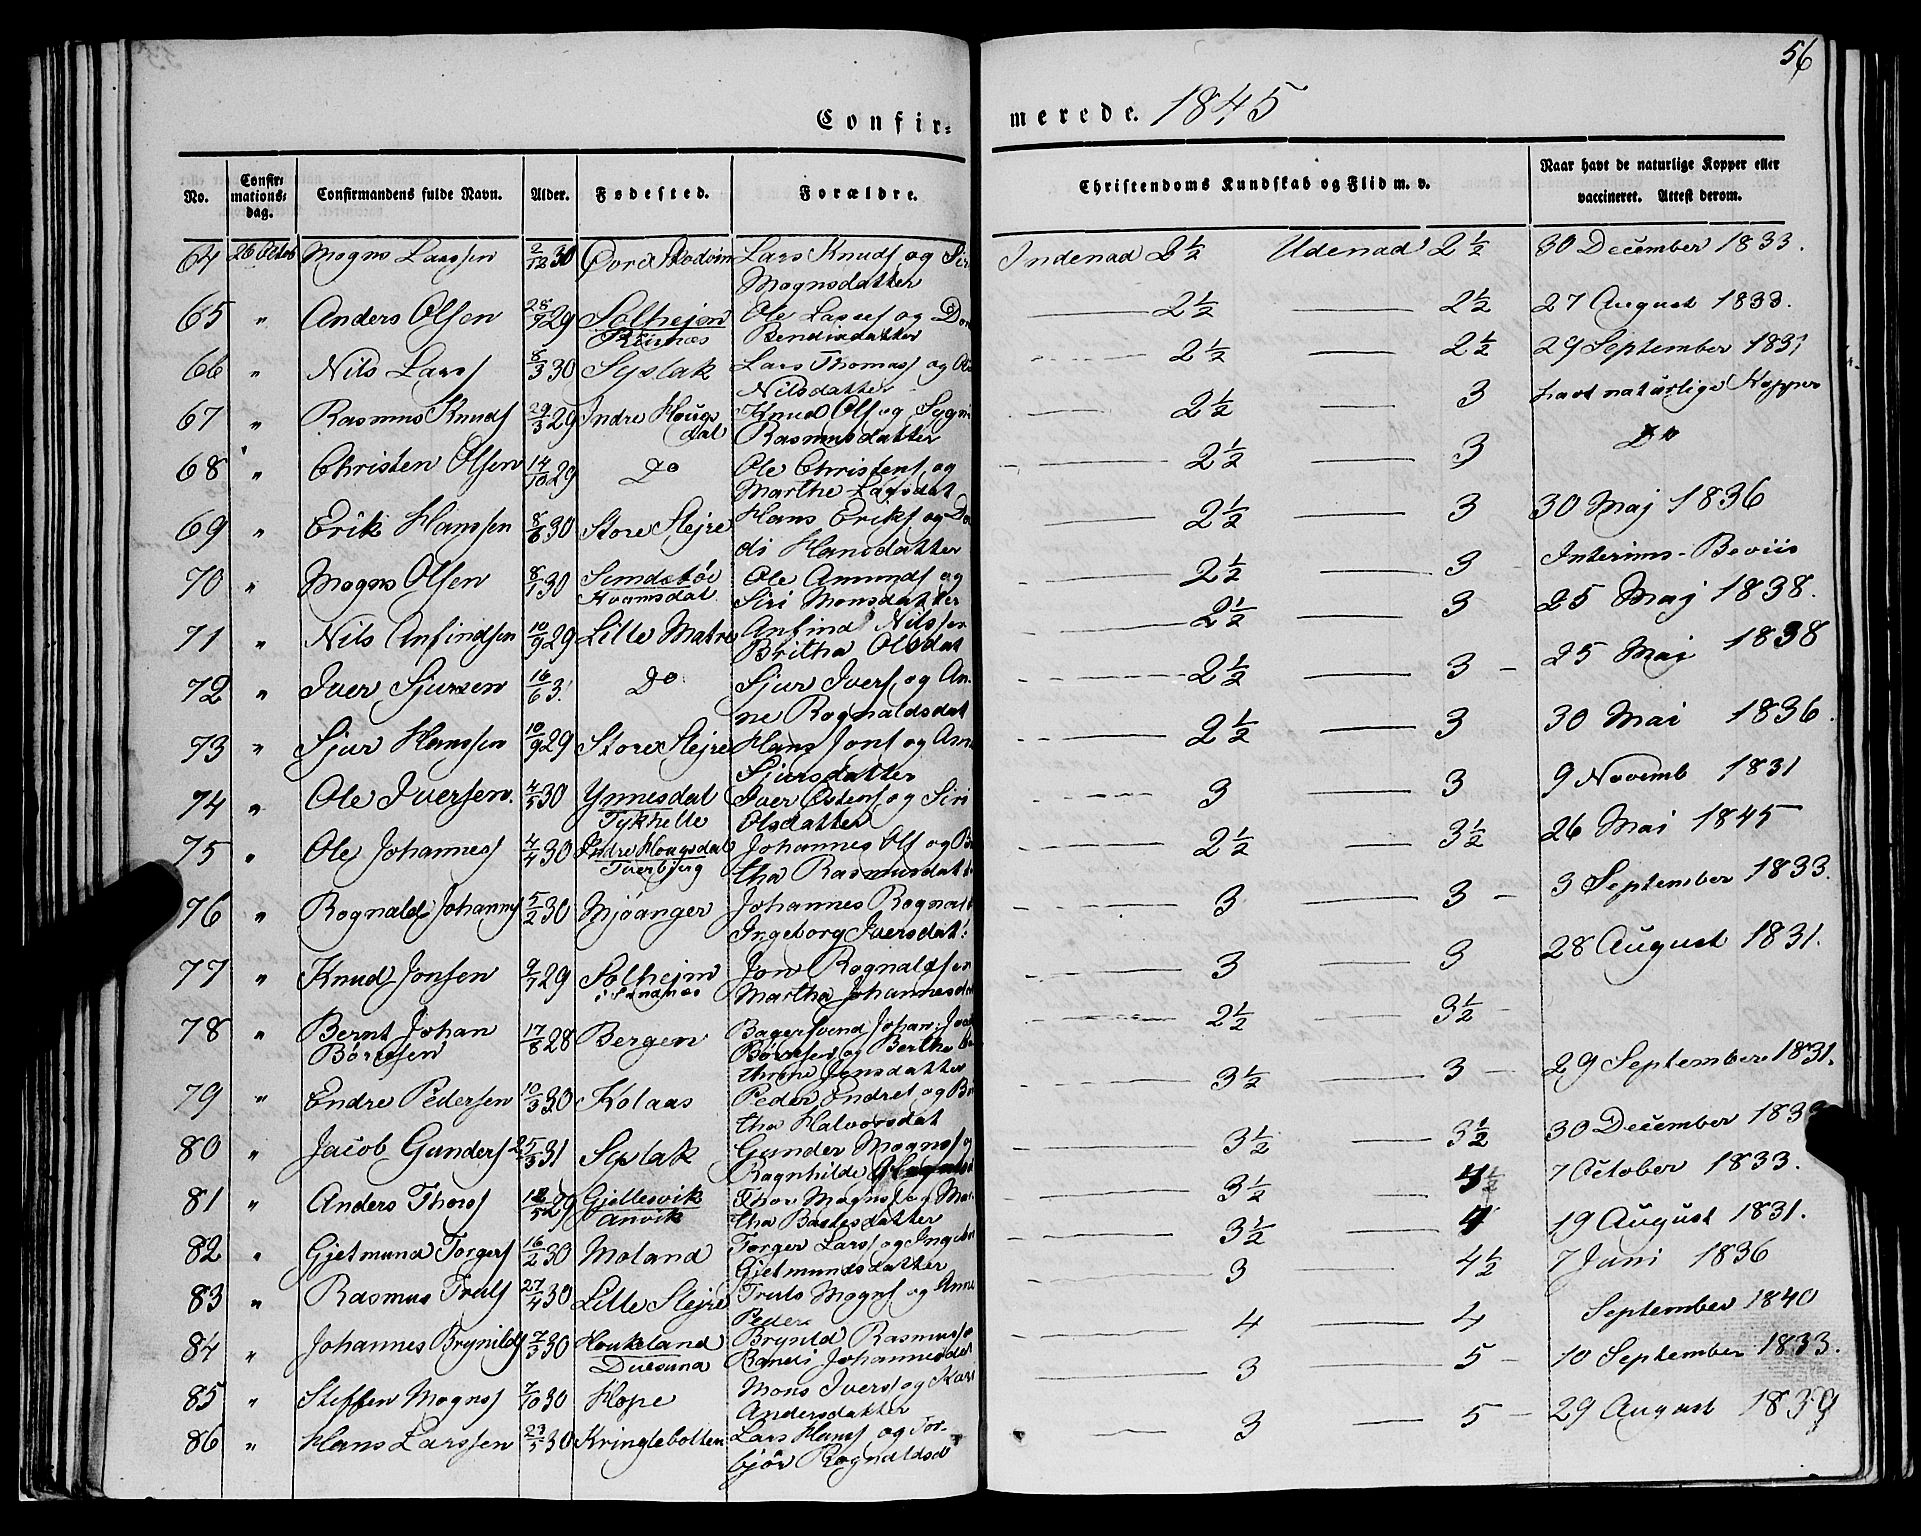 56
Confir= merede. 1845
No. Confir= mations= dag. Confirmandens fulde Navn. Alder. Fødested. Forældre. Christendoms Kundskab og Flid m. v. Naar havt de naturlige Kopper eller vaccineret. Attest derom.
64 26 Octob Mogns Larssen 2/12 30 Lars Knuds og Siri Indenad 2½ Udenad 2½ 30 December 1833.
Mognsdatter
65 " Anders Olsen 28/9 29 Solhejm Ole Larss og 2½ 2½ 27 August 1833.
Bendixdatter
66 " Nils Larss 8/3 30 Syslak Lars Thomass og 2½ 2½ 29 September 1831
Nilsdatter
67 " Rasmus Knuds 29/3 29 Indre Hougs Knud Ols og Sygni 2½ 3 havt naturlige Kopper
dal Rasmusdatter
68 " Christen Olsen 14/10 29 Do Ole Christens og 2½ 3 Do
Marthe Larsdat
69 " Erik Hanssen 8/8 30 Store Slejre Hans Eriks og 2½ 3 30 Maj 1836
di Hansdatter
70 " Mogns Olsen 8/1 30 Sundsbøe Ole Amunds og 2½ 3 Interims-Beviis
Kvamsdal Siri Monsdatter
71 " Nils Anfindsen 10/9 29 Lille Matre Anfind Nilssen 2½ 3 25 Maj 1838.
Britha Olsdat
72 " Iver Sjursen 16/6 3 Do Sjur Ivers og An- 2½ 3 25 Mai 1838
ne Rognaldsdat
73 " Sjur Hanssen 10/9 29 Store Slejre Hans Jons og 2½ 3 30 Mai 1836.
Sjursdatter
74 " Ole Iversen. 4/5 30 Ynnesdal Iver Østens og Siri 3 3 9 Novemb 1831
Tykhelle Olsdatter
75 " Ole Johanness 7/4 30 Indre Hougsdal Johannes Ols og 2½ 3½ 26 Mai 1845
Tverbjerg tha Rasmusdatt
76 " Rognald Johannss 5/2 30 Mjøanger Johannes Rognald 3 3 3 September 1833.
Ingeborg Iversdat
77 " Knud Jonsen 9/7 29 Solhejm Jon Rognaldsen 3 3 28 August 1831.
Martha Johannesdat
78 " Bernt Johan 17/8 28 Bergen Bagersvend Johan 2½ 3½
Børresen Børresen og Berthe
thrine Jensdatter
79 " Endre Pedersen 10/3 30 Kolaas Peder Endres og 3½ 3 29 September 1831.
tha Halvorsdat
80 " Jacob Gunders 25/3 31 Syslak Gunder Mognss 3½ 3½ 30 December 1833
Ragnhilde
81 " Anders Thors 12/5 29 Gjellesvik Thor Mognss og 3½ 7 October 1833.
Anvik tha Bastesdatter
82 " Gjetmund Torgers 16/2 30 Moland Torger Larss og 3½ 4 19 August 1831.
Gjetmundsdatter
83 " Rasmus Truls 27/4 30 Lille Slejre Truls Mogns og Anne 3 4½ 7 Juni 1836
Peders
84 " Johannes Brynilds 7/3 30 Houkeland Brynild Rasmuss 4 4 September 1840
Duesund Johannesdat
85 " Steffen Mognss 7/10 30 Hope Mons Ivers og Kari 3 5 10 September 1833.
Andersdatter
86 " Hans Larssen 23/5 30 Kringlebotten Lars Hanss og Tor- 3 5 29 August 1839
bjør Rognaldsd